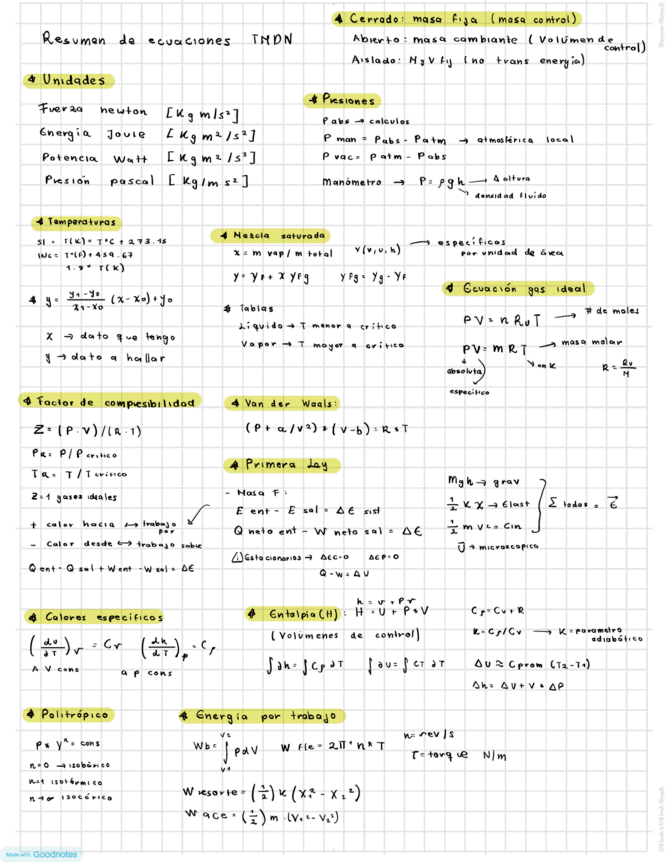 Resumen de ecuaciones TMDN
Cerrado: masa fija (masa control)
Abierto: masa cambiante (Volúmen de control)
Aislado: M y V fij (no trans energía)
Unidades
Fuerza newton [Kg m/s²]
Energía Joule [Kg m²/s²]
Potencia Watt [Kg m²/s³]
Presión pascal [Kg/m s²]
Presiones
P abs → calculos
P man = Pabs - Patm → atmosférica local
P vac = Patm - Pabs
Manómetro → P = ρgh → Δ altura
densidad fluido
Temperaturas
SI = T(K) = T°C + 273.15
ING = T°(F) + 459.67
1.8 * T(K)
y = y1-y0 / x1-x0 (x-x0) + y0
x → dato que tengo
y → dato a hallar
Mezcla saturada
x = m vap/m total
Y(v,u,h) → específicas por unidad de área
y = yf + x yfg yfg = yg - yf
Tablas
Líquido → T menor a crítico
Vapor → T mayor a crítico
Ecuación gas ideal
PV = n Ru T → # de moles
PV = m R T → masa molar
absoluta
en K
específico
R = Ru/M
Factor de compresibilidad
Z = (P·V)/(R·T)
PR = P/P critico
TR = T/T crítico
Z=1 gases ideales
+ calor hacia ↔ trabajo por
- Calor desde ↔ trabajo sobre
Q ent - Q sal + W ent - W sal = ΔE
Van der Waals:
(P + a/v²) * (V-b) = R * T
Primera Ley
- Masa F:
E ent - E sal = ΔE sist
Q neto ent - W neto sal = ΔE
Estacionarios → ΔEC=0 ΔEP=0
Q - W = ΔU
Mgh → grav
1/2 K x → Elast
1/2 m v² = Cin
U → microscopica
Σ todas = E
Calores específicos
(du/dT)v = Cv (dh/dT)p = Cp
A V cons a p cons
Entalpía (H):
h = u + Pv
H = U + P*V
(Volúmenes de control)
∫dh = ∫Cp dT ∫du = ∫CT dT
Cp = Cv + R
K = Cp/Cv → K = parametro adiabático
ΔU ≈ Cprom (T2-T1)
Δh = ΔU + V * ΔP
Politrópico
P * Vⁿ = cons
n=0 → isobárico
n=1 isotérmico
n→∞ isocórico
Energía por trabajo
Wb = ∫ V1 V2 P dV W fle = 2π * n * T
n = rev/s
T = torque N/m
W resorte = (1/2) K (X1² - X2²)
W ace = (1/2) m · (V1² - V2²)
Made with Goodnotes